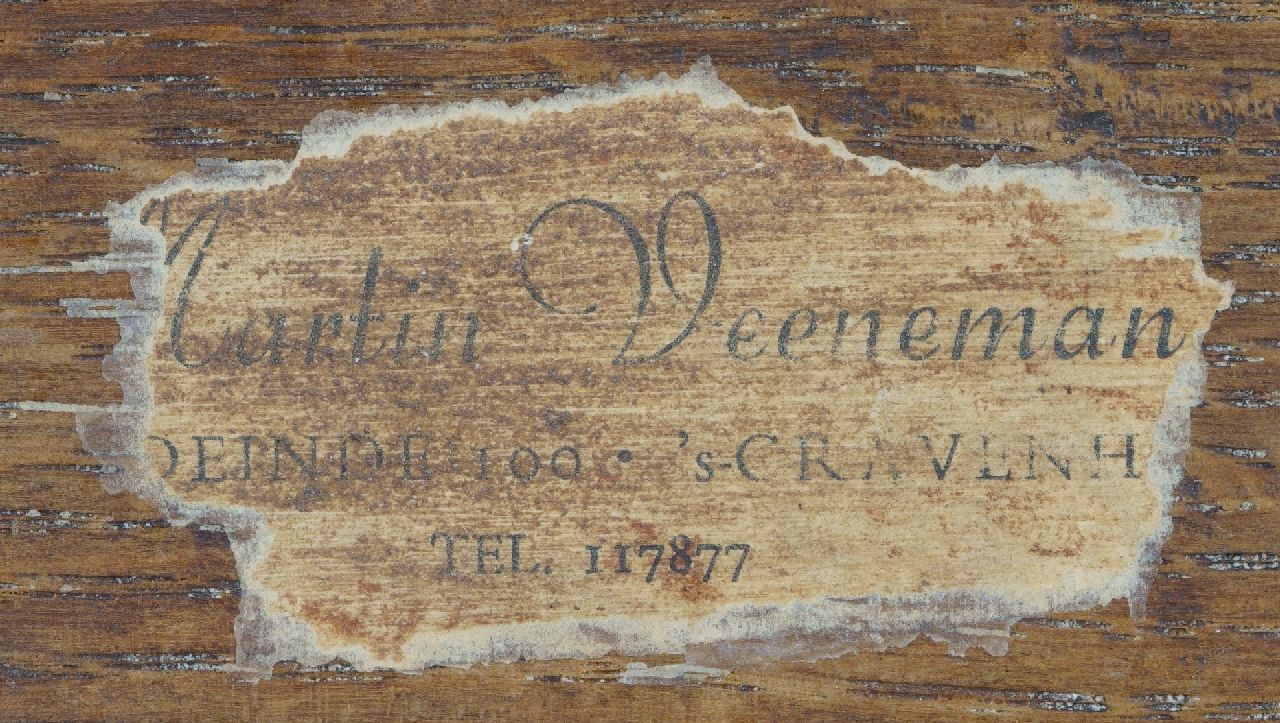 Martin Veeneman
OEINDE 100 • 's-GRAVENH
TEL. 117877